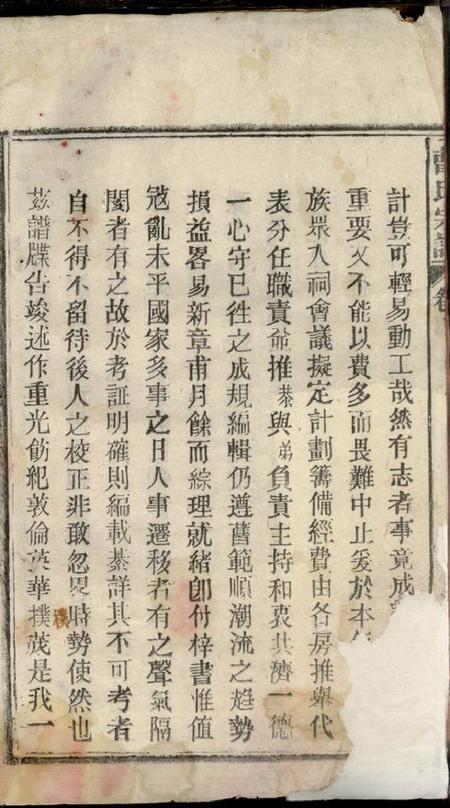 曹氏宗譜 卷
計豈可輕易動工哉然有志者事竟成
重要又不能以費多而畏難中止爰於本
族眾入祠會議擬定計劃籌備經費由各房推舉代
表分任職責僉推棻與弟負責主持和衷共濟一德
一心守已徃之成規編輯仍遵舊範順潮流之趋勢
損益畧易新章甫月餘而綜理就緒卽付梓書惟值
冦亂未平國家多事之日人事遷移者有之聲氣隔
閡者有之故於考証明確則編載綦詳其不可考者
自不得不留待後人之校正非敢忽畧時勢使然也
茲譜牒告竣述作重光飭紀敦倫英華撲蔑是我一
棧